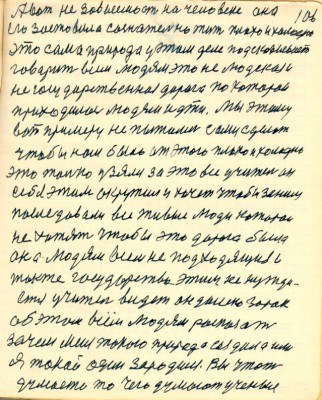 106
А вот не зависимость на человеке она
его заставила сознательно тит плохо и холодно
это сама природа у этом деле подсказывает
говорит всем людям это не людская
не государственная дорога по которой
приходилось людям идти. Мы этому
вот примеру не пытались сами сделать
чтобы нам было от этого плохо и холодно
это только узялся за это все учитель он
себя этим окрутил и хочет чтобы за ним
последовали все живые люди которые
не хотят чтобы эта дорога была
она людям всем не подходящая
тоже государству этим не нужда-
ется учитель видит он далеко зорок
об этом всем людям рассказать
зачем меня такого природа создала или
я такой один зародился. Вы что
думаете то чего думают ученые